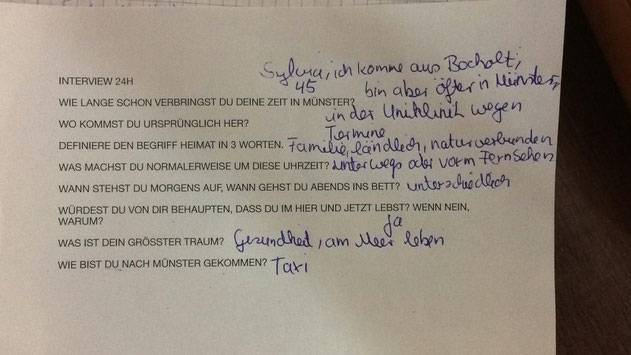 Sylvia, ich komme aus Bocholt,
INTERVIEW 24H 45 bin aber öfter in Münster,
WIE LANGE SCHON VERBRINGST DU DEINE ZEIT IN MÜNSTER?
in der Uniklinik wegen
WO KOMMST DU URSPRÜNGLICH HER?
Termine
DEFINIERE DEN BEGRIFF HEIMAT IN 3 WORTEN. Familie, ländlich, naturverbunden
WAS MACHST DU NORMALERWEISE UM DIESE UHRZEIT? unterwegs oder vorm Fernsehen
WANN STEHST DU MORGENS AUF, WANN GEHST DU ABENDS INS BETT? unterschiedlich
WÜRDEST DU VON DIR BEHAUPTEN, DASS DU IM HIER UND JETZT LEBST? WENN NEIN,
WARUM? ja
WAS IST DEIN GRÖSSTER TRAUM? Gesundheid, am Meer leben
WIE BIST DU NACH MÜNSTER GEKOMMEN? Taxi